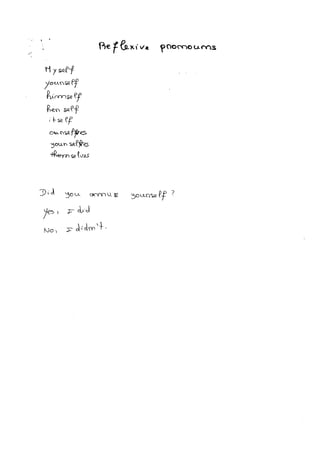 Reflexive pronouns
Myself
yourself
himself
her self
itself
ourselves
yourselves
themselves
Did you amuse yourself ?
Yes, I did
No, I didn't.